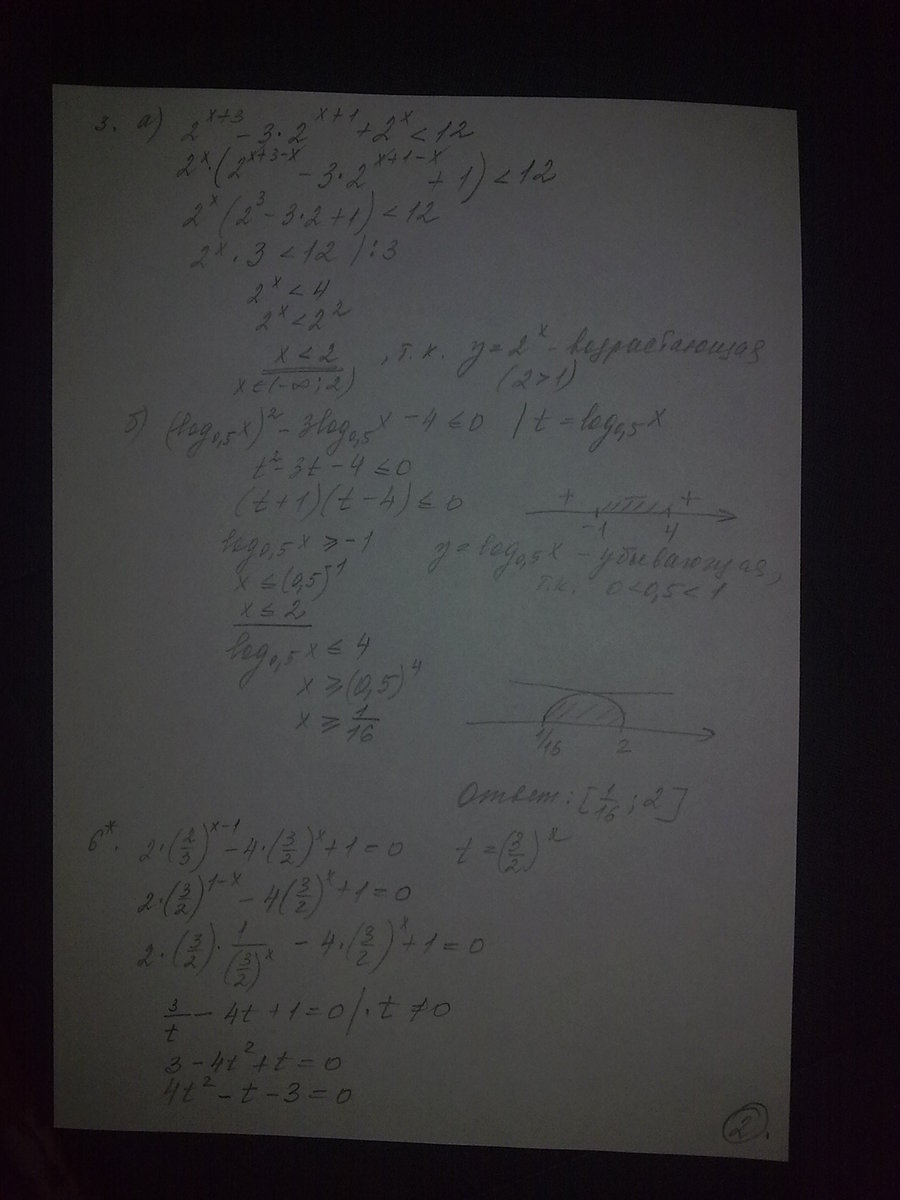 3. а) 2^(x+3) - 3·2^(x+1) + 2^x < 12
2^x·(2^(x+3-x) - 3·2^(x+1-x) + 1) < 12
2^x (2^3 - 3·2 + 1) < 12
2^x · 3 < 12 | :3
2^x < 4
2^x < 2^2
x < 2 , т.к. y = 2^x - возрастающая
x ∈ (-∞; 2) (2>1)
б) (log_0,5 x)^2 - 3log_0,5 x - 4 ≤ 0 | t = log_0,5 x
t^2 - 3t - 4 ≤ 0
(t+1)(t-4) ≤ 0
+ - +
-1 4
log_0,5 x ≥ -1 y = log_0,5 x - убывающая,
x ≤ (0,5)^-1 т.к. 0 < 0,5 < 1
x ≤ 2
log_0,5 x ≤ 4
x ≥ (0,5)^4
x ≥ 1/16
1/16 2
Ответ: [1/16 ; 2]
6*. 2·(2/3)^(x-1) - 4·(3/2)^x + 1 = 0 t = (3/2)^x
2·(3/2)^(1-x) - 4(3/2)^x + 1 = 0
2·(3/2)·1/(3/2)^x - 4·(3/2)^x + 1 = 0
3/t - 4t + 1 = 0 | ·t ≠ 0
3 - 4t^2 + t = 0
4t^2 - t - 3 = 0
2.